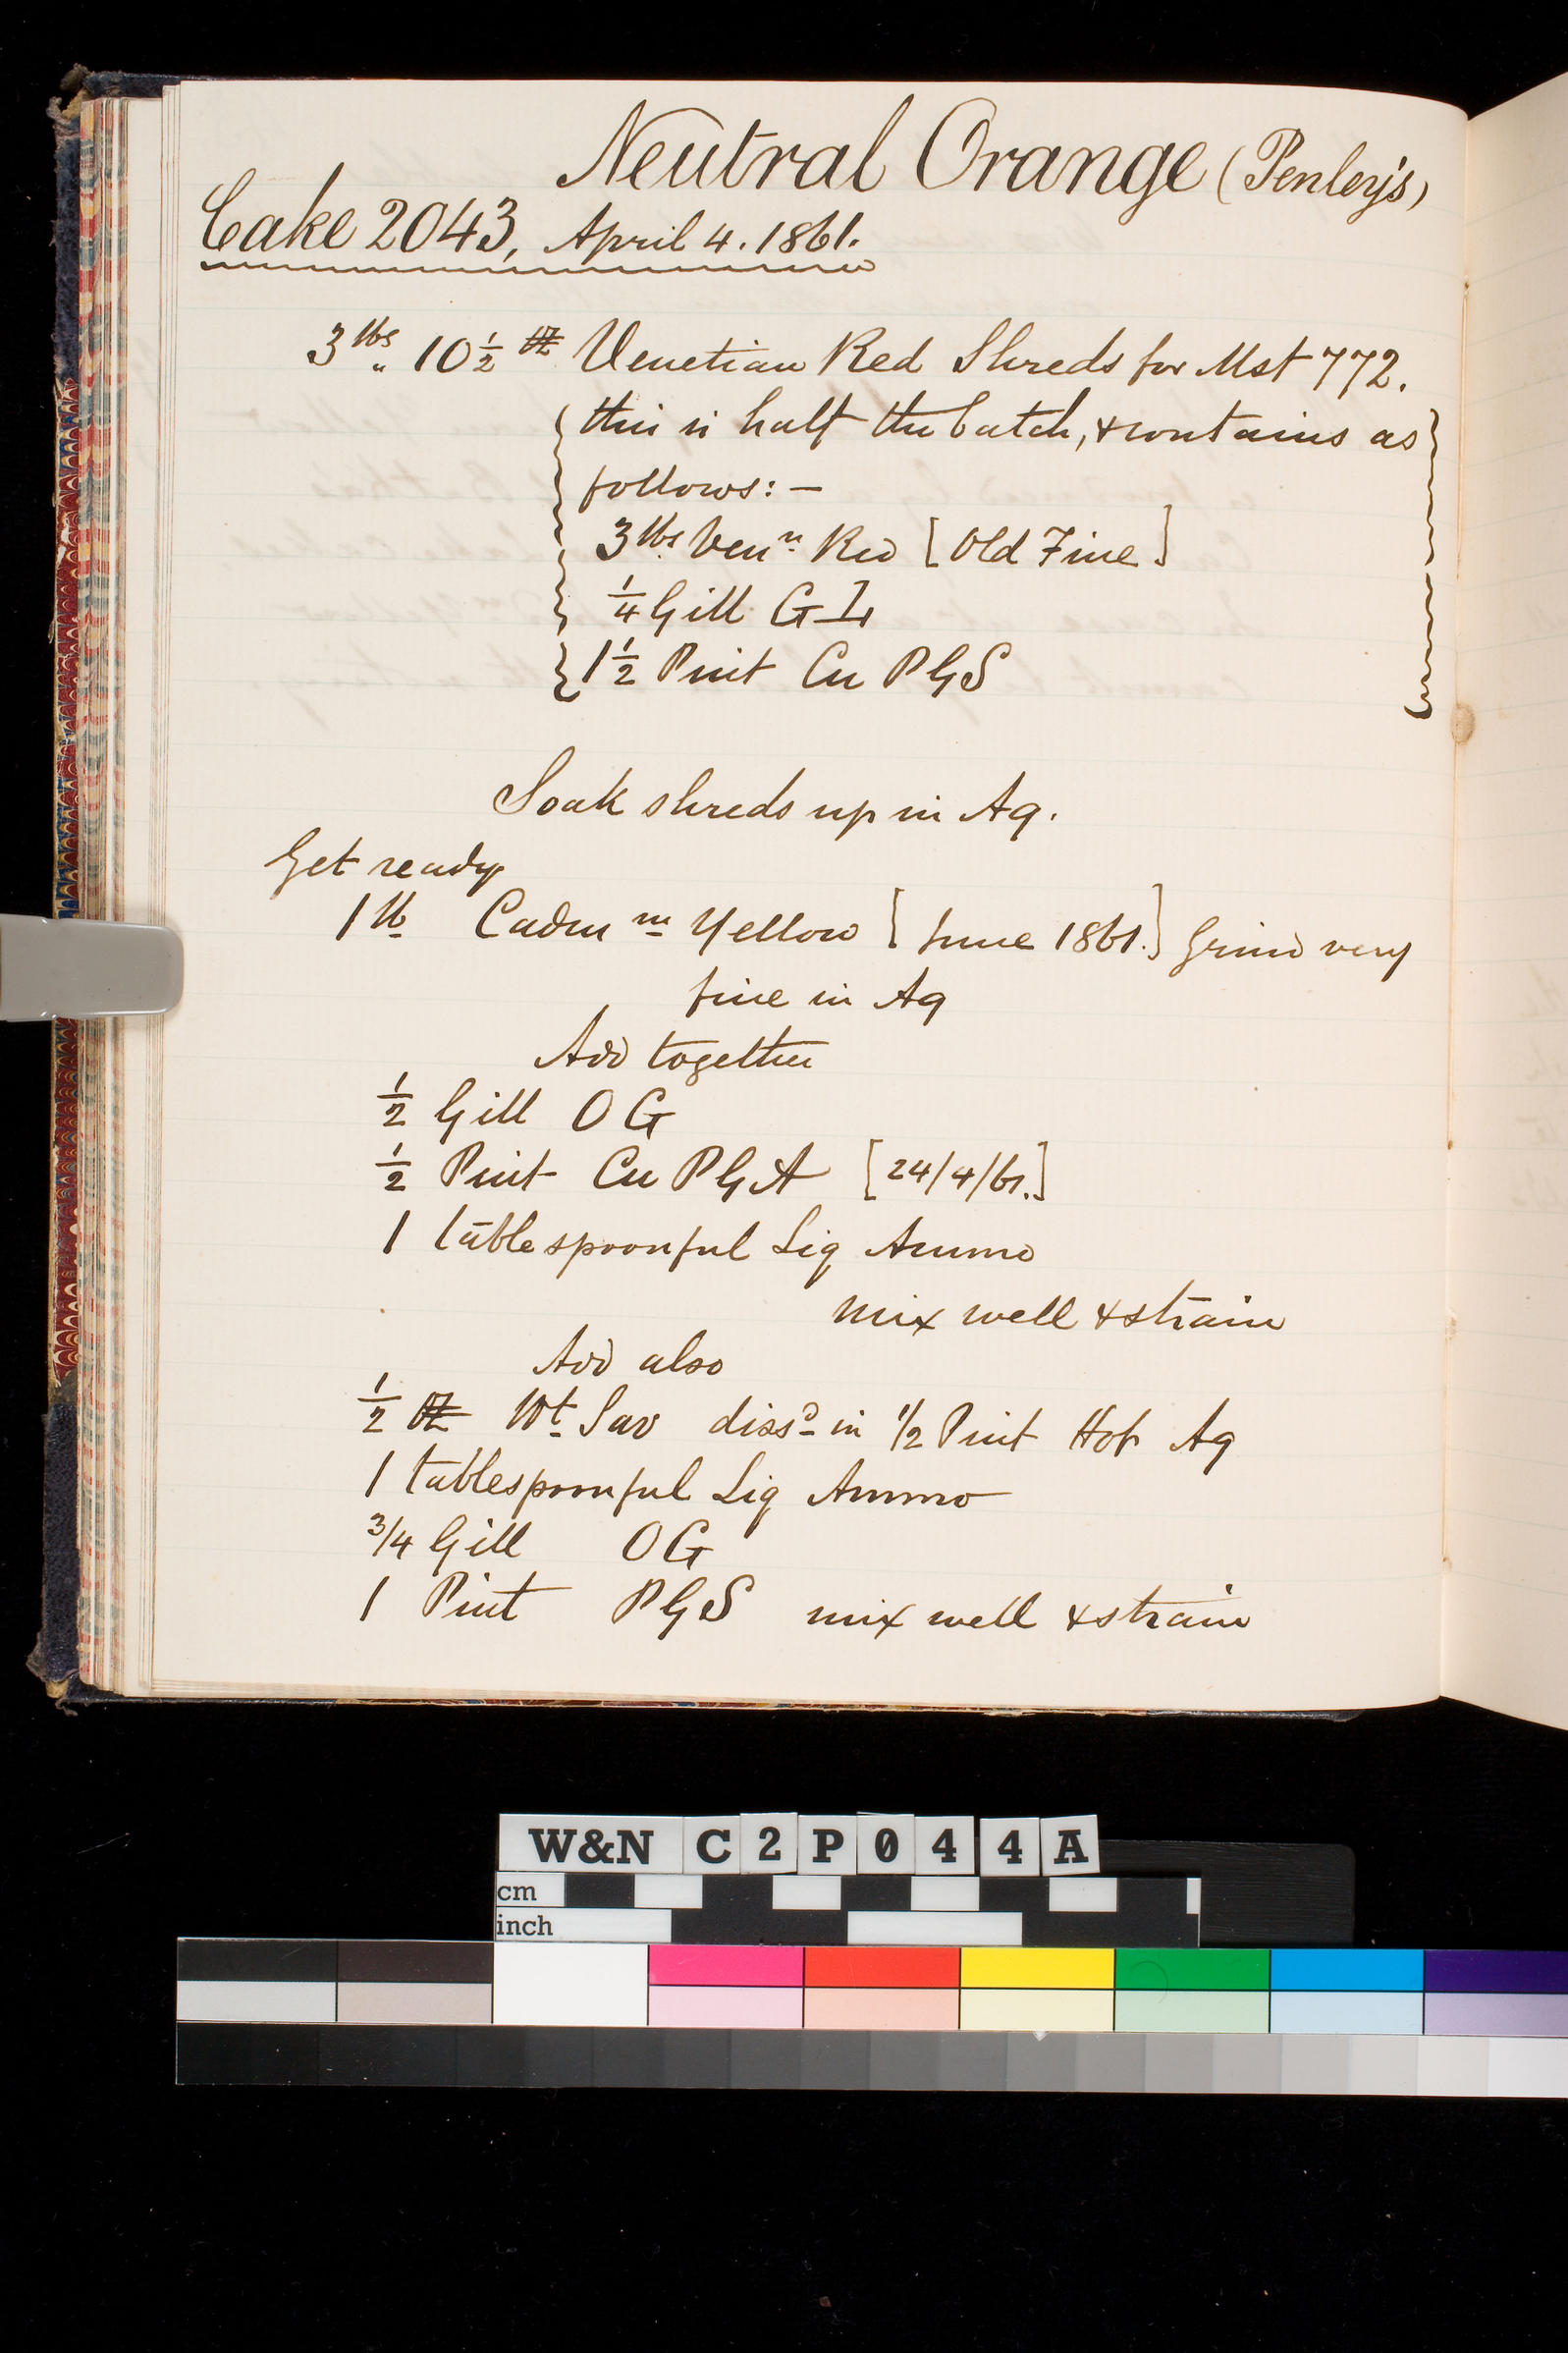 Neutral Orange (Penley's)
Cake 2043, April 4. 1861.
3 lbs 10 1/2 oz Venetian Red Shreds for Mst 772.
this is half the batch, & contains as
follows: —
3 lbs Ven n Red [Old Fine]
1/4 Gill G L
1 1/2 Pint Cu P G S
Soak shreds up in Aq.
Get ready
1 lb Cadm m Yellow [June 1861.] Grind very
fine in Aq
Add together
1/2 Gill O G
1/2 Pint Cu P G A [24/4/61.]
1 tablespoonful Liq Ammo
mix well & strain
Add also
1/2 oz Wt Sav diss d in 1/2 Pint Hot Aq
1 tablespoonful Liq Ammo
3/4 Gill O G
1 Pint P G S mix well & strain
W&N C2P044A
cm
inch